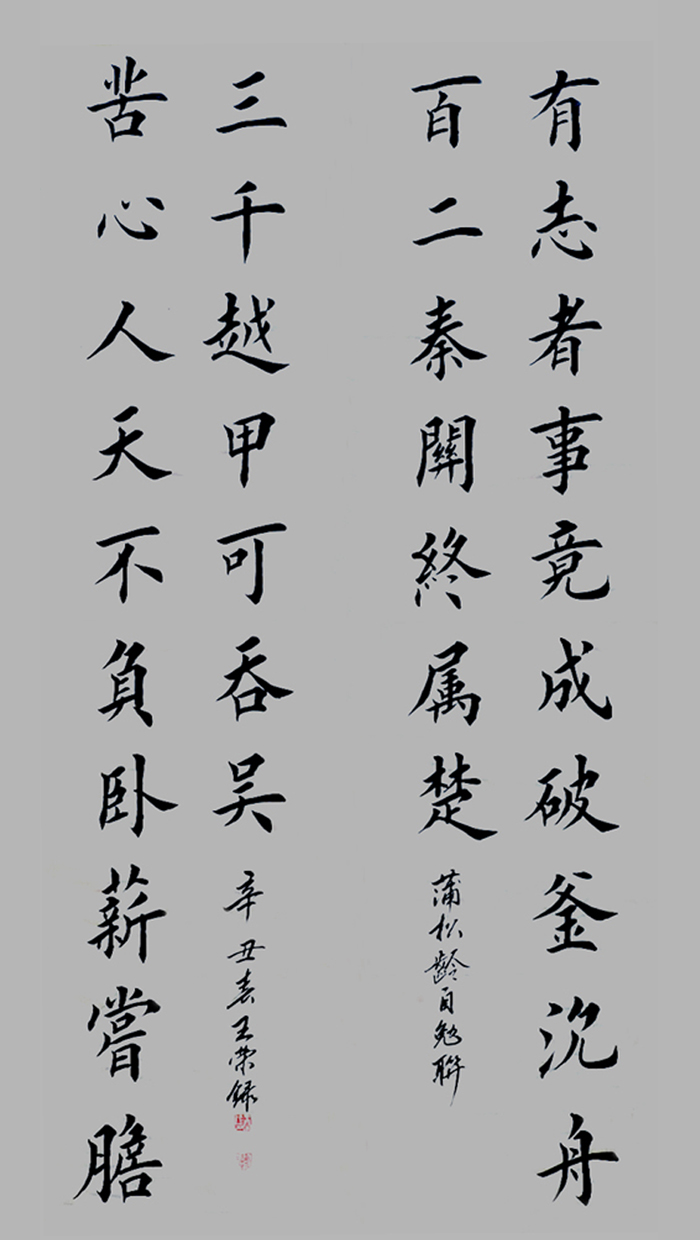 有志者事竟成破釜沉舟
百二秦關終属楚
蒲松齡自勉聯
苦心人天不負卧薪嘗膽
三千越甲可吞吴
辛丑春王荣録